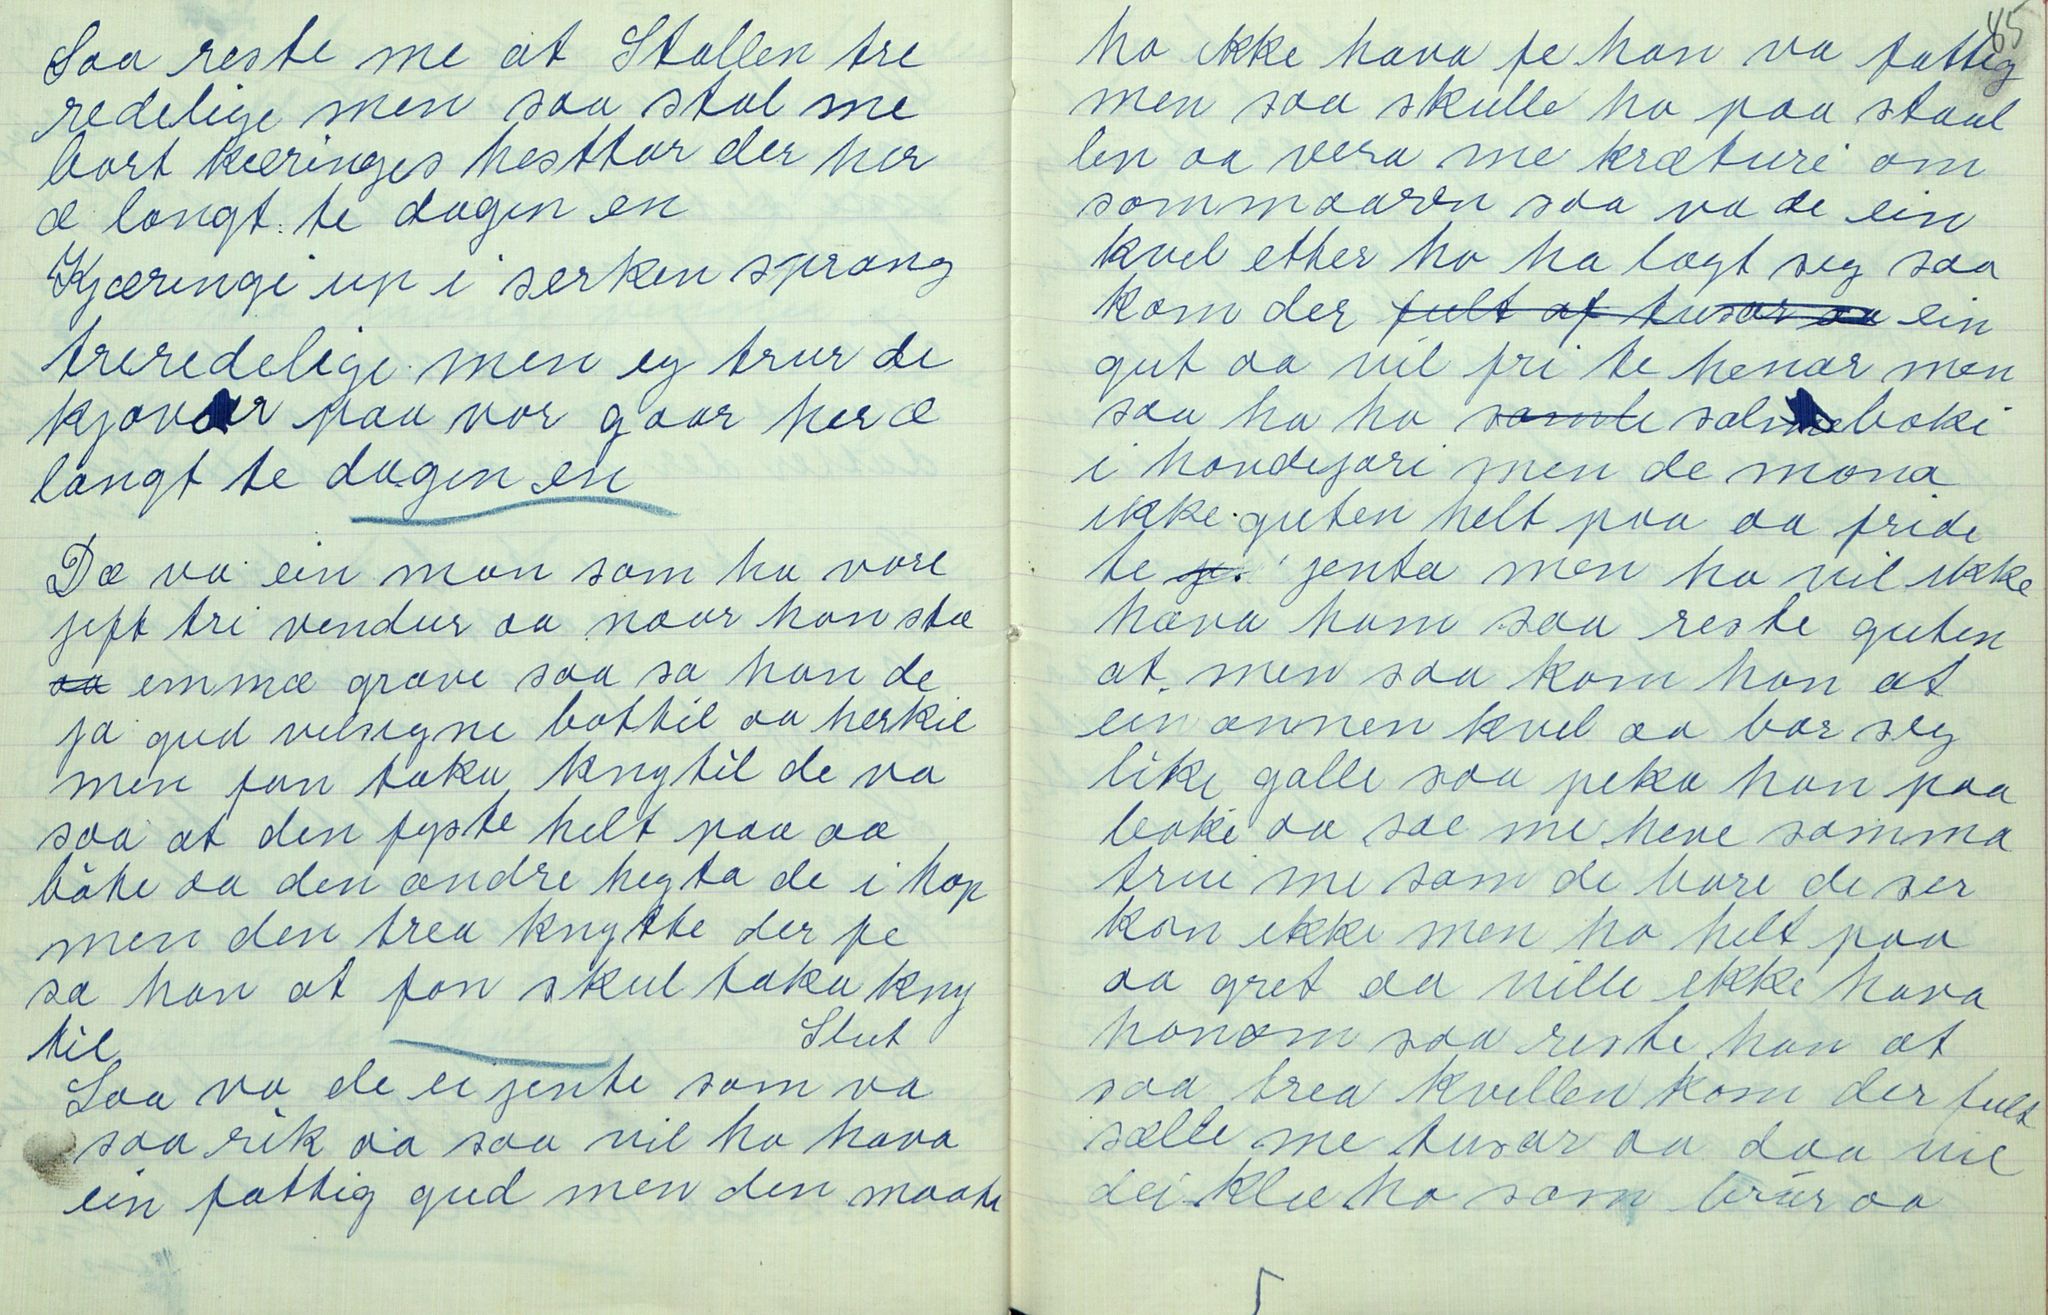 Saa reste me at Stallen tre
redelige men saa stal me
bort kæringes hesttar der her
æ langt te dagen en
Kjæringi up i serken sprang
treredelige men eg trur de
kjøver paa vor gaar her æ
langt te dagen en
Dæ va ein man som ha vore
jift tri vendur aa naar han sto
aa emmæ grave saa sa han de
ja gud velsigne bottil aa herkil
men fan taka knytil de va
saa at den fyste helt paa aa
bøte aa den andre hegta de i hop
men den trea knytte der fe
sa han at fan skul taka kny
til
Slut
Saa va de ei jente som va
saa rik aa saa vil ho hava
ein fattig gud men den maate
85
ho ikke hava fe han va fattig
men saa skulle ho paa staal
len aa vera me kræturi om
sommaaren saa va de ein
kvel etter ho ha lagt seg saa
kom der fult af tusar aa ein
gut aa vil fri te henar men
saa ha ho samle salmeboki
i hovdejæri men de mona
ikke guten helt paa aa fride
te j. jenta men ho vil ikke
hava ham saa reste guten
at. men saa kom han at
ein annen kvel aa bar seg
like galle saa peka han paa
boki aa sae me heve samma
trui me som de bare de ser
kan ikke men ho helt paa
aa gret aa ville ikke hava
honom saa reste han at
saa trea kvellen kom der fult
sælle me tusar aa daa vil
dei klæ ho som brur aa